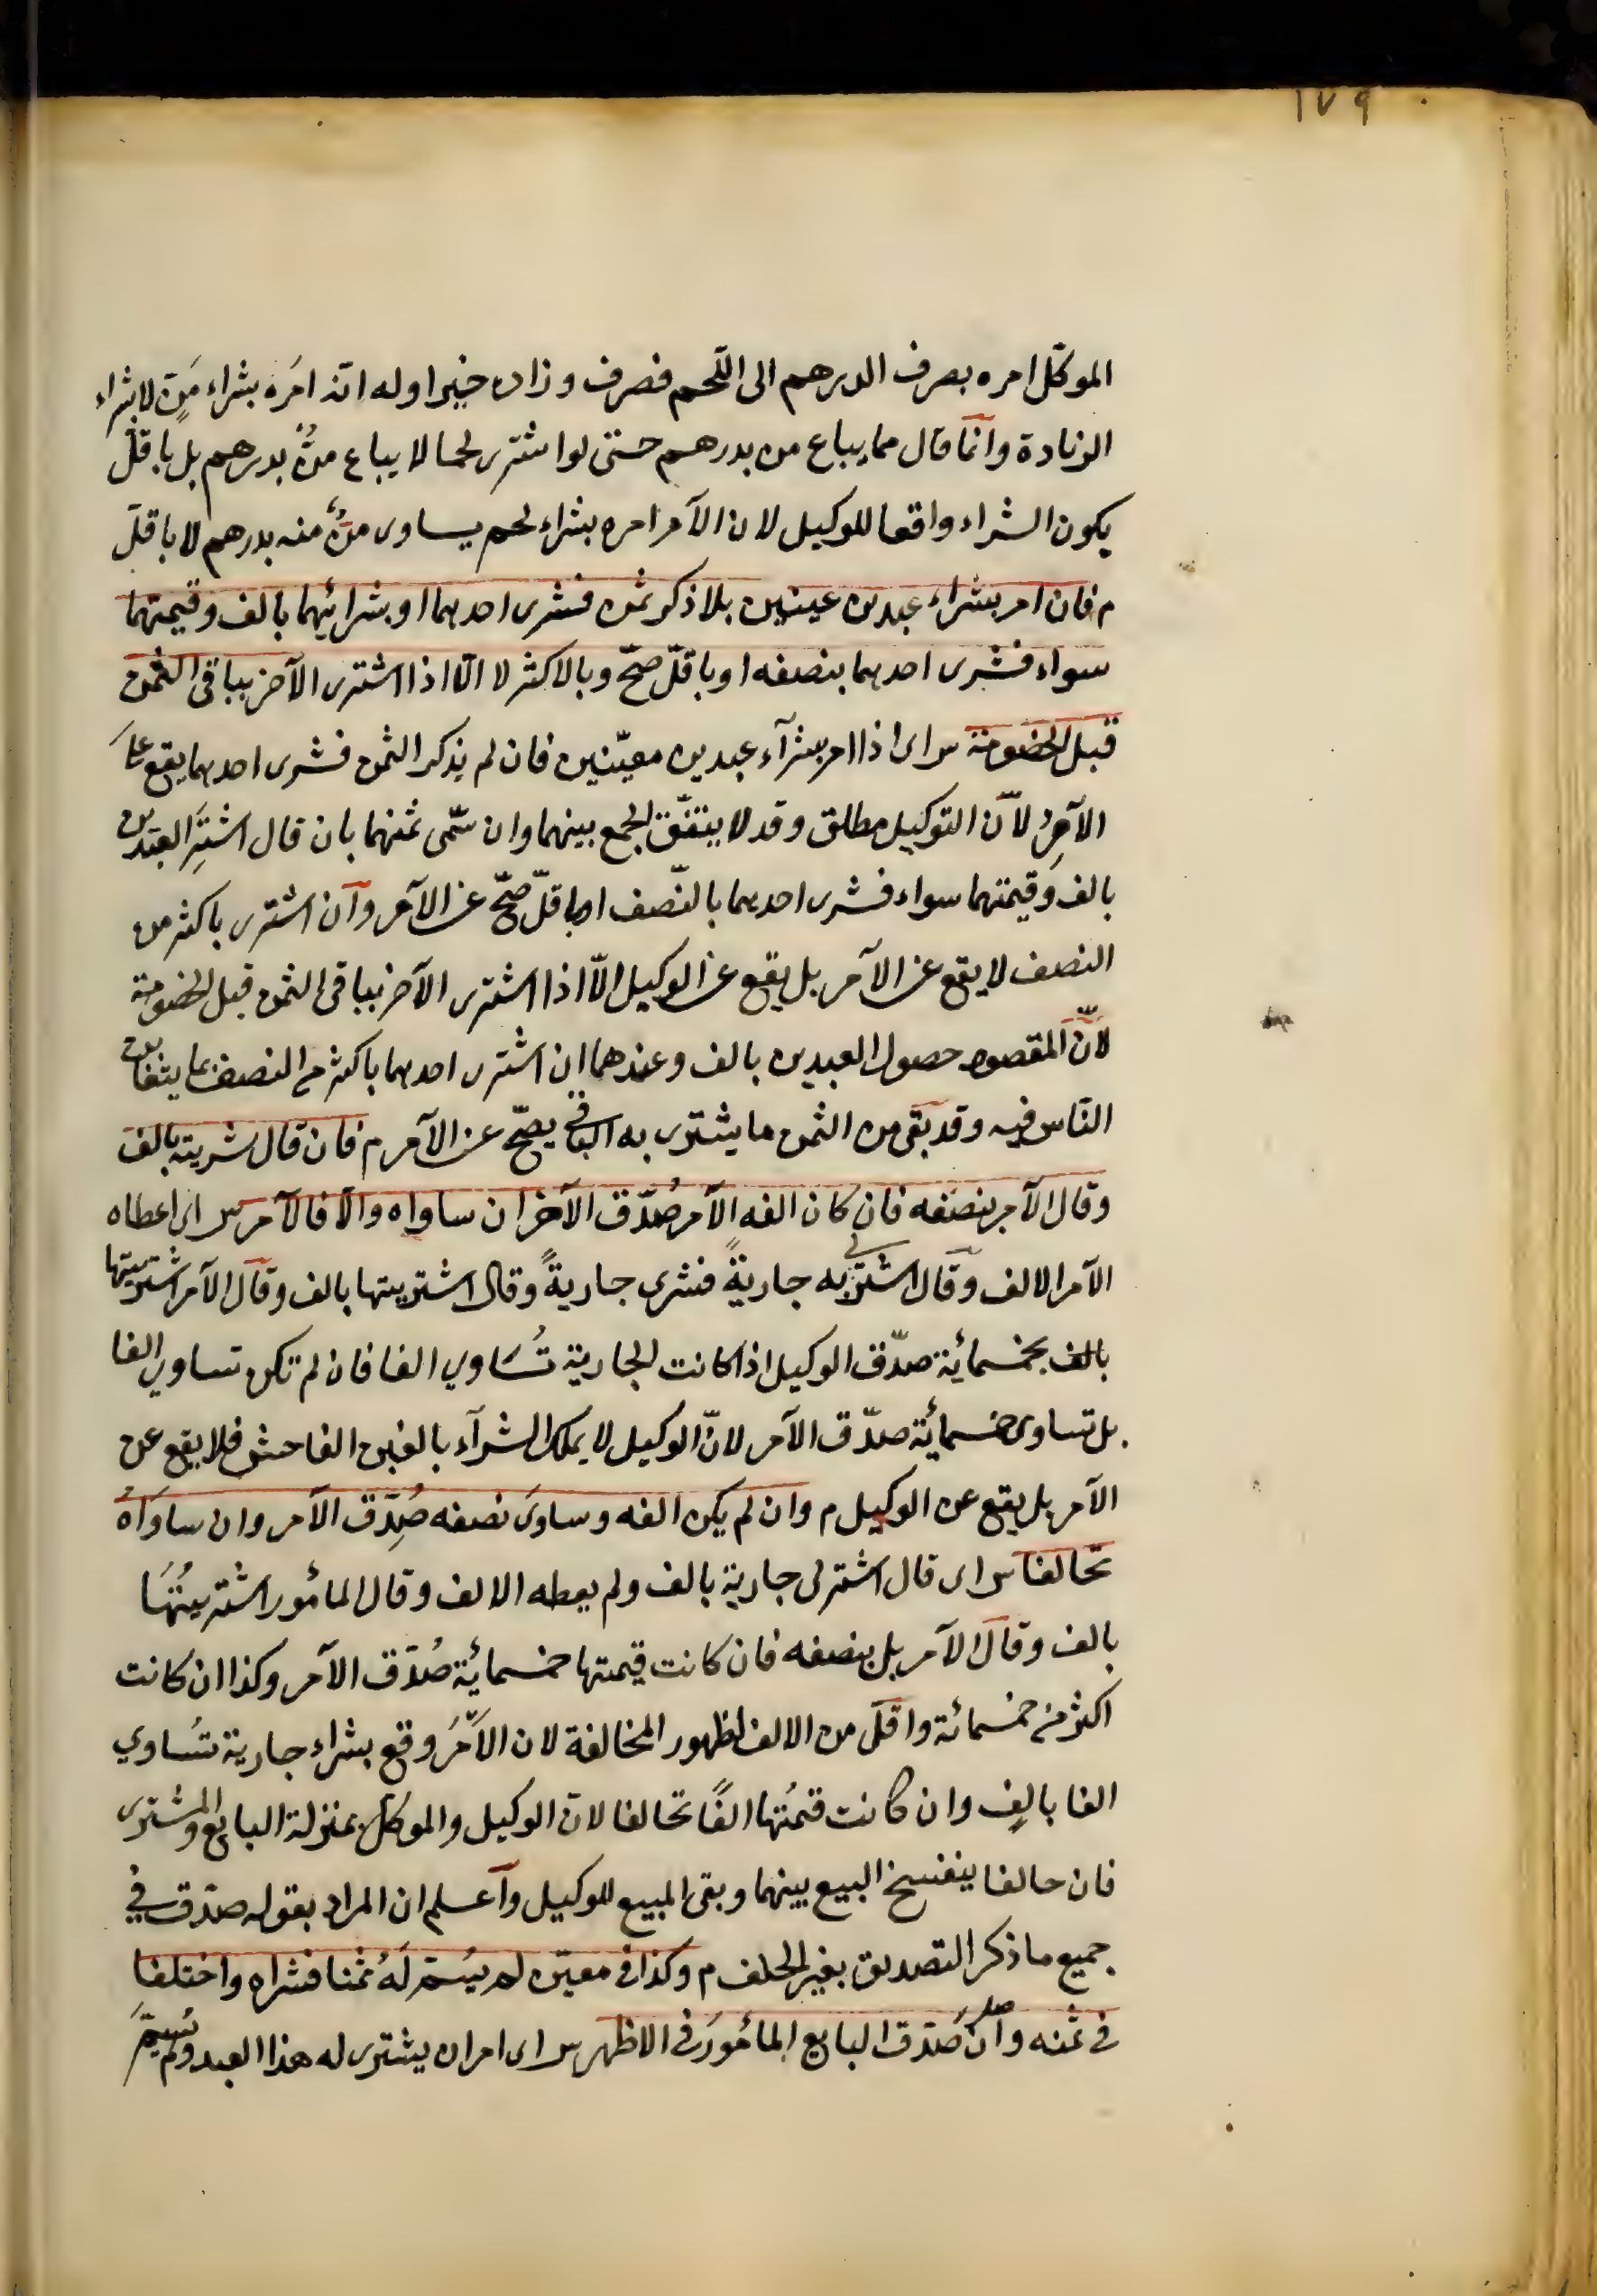 ١٧٩
الموكّل امره بصرف الدرهم الى اللّحم فصرف وزاده خيرا وله انّه امَره بشراء مَنٍّ لا بشراء
الزيادة وانّما قال مما يباع من بدرهم حتى لو اشترى لحما لا يباع منٌّ بدرهم بل باقلّ
يكون الشراء واقعا للوكيل لان الآمر امره بشراء لحم يساوى منٌّ منه بدرهم لا باقلّ
م فان امر بشراء عبدين عينين بلا ذكر ثمن فشرى احدهما او بشرائهما بالف وقيمتهما
سواء فشرى احدهما بنصفه او باقلّ صحّ وبالاكثر لا الّا اذا اشترى الآخر بباقى الثمن
قبل الخصومة س اى اذا امر بشرآء عبدين معيّنين فان لم يذكر الثمن فشرى احدهما يقع عن
الآمِرِ لانّ التوكيل مطلق وقد لا يتفّق الجمع بينهما وان سمّى ثمنهما بان قال اشتَرِ العبدين
بالف وقيمتهما سواء فشرى احدهما بالنّصف او باقلّ صحّ عن الآمر وآن اشترى باكثر من
النصف لا يقع عن الآمر بل يقع عن الوكيل الّا اذا اشترى الآخر بباقى الثمن قبل الخصومة
لانّ المقصود حصول العبدين بالف وعندهما ان اشترى احدهما باكثر من النصف بما يتغابن
النّاس فيه وقد بقى من الثمن ما يشترى به الباقى يصحّ عن الآمر م فان قال شريته بالف
وقال الآمر بنصفه فان كان الفه الآمر صُدّق الآخر ان ساواه والّا فالآمر س اى اعطاه
الآمر الالف وقال اشتر لى به جاريةً فشرى جاريةً وقال اشتريتها بالف وقال الآمر اشتريتها
بالف بخمسمائة صدّق الوكيل اذا كانت الجارية تُسَاوي الفا فان لم تكن تساوي الفا
بل تساوى خمسمائة صدّق الآمر لانّ الوكيل لا يملك الشرآء بالغبن الفاحش فلا يقع عن
الآمر بل يقع عن الوكيل م وان لم يكن الفه وساوى نصفه صُدِّق الآمر وان ساوَاهُ
تحالفا س اى قال اشتر لى جارية بالف ولم يعطه الالف وقال المأمور اشتريتُهَا
بالف وقال الآمر بل بنصفه فان كانت قيمتها خمسمائة صُدّق الآمر وكذا ان كانت
اكثر من خمسمائة واقلّ من الالف لظهور المخالفة لان الاَمْرَ وقع بشراء جارية تُساوي
الفا بالفٍ وان كانت قيمتُها الفًا تحالفا لانّ الوكيل والموكّل بمنزلة البايع والمشترى
فان حالفا ينفسخ البيع بينهما وبقى المبيع للوكيل وآعلم ان المراد بقوله صدّق فى
جميع ما ذكر التصديق بغير الحلف م وكذا فى معيّن لم يُسَمّ لَهُ ثمنا فشراه واختلفا
فى ثمنه وان صَدّق البايع المأمُورَ فى الاظهر س اى امر ان يشترى له هذا العبد ولم يُسِمِّ